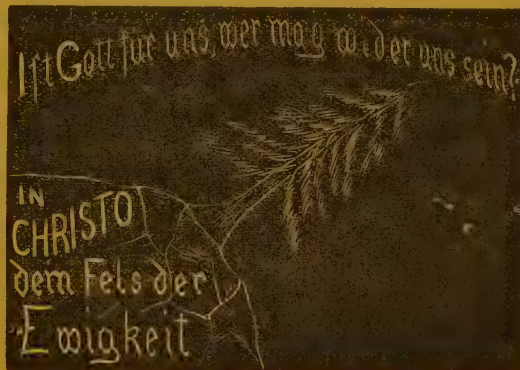 Ist Gott für uns, wer mag wider uns sein?
IN
CHRISTO
dem Fels der
Ewigkeit